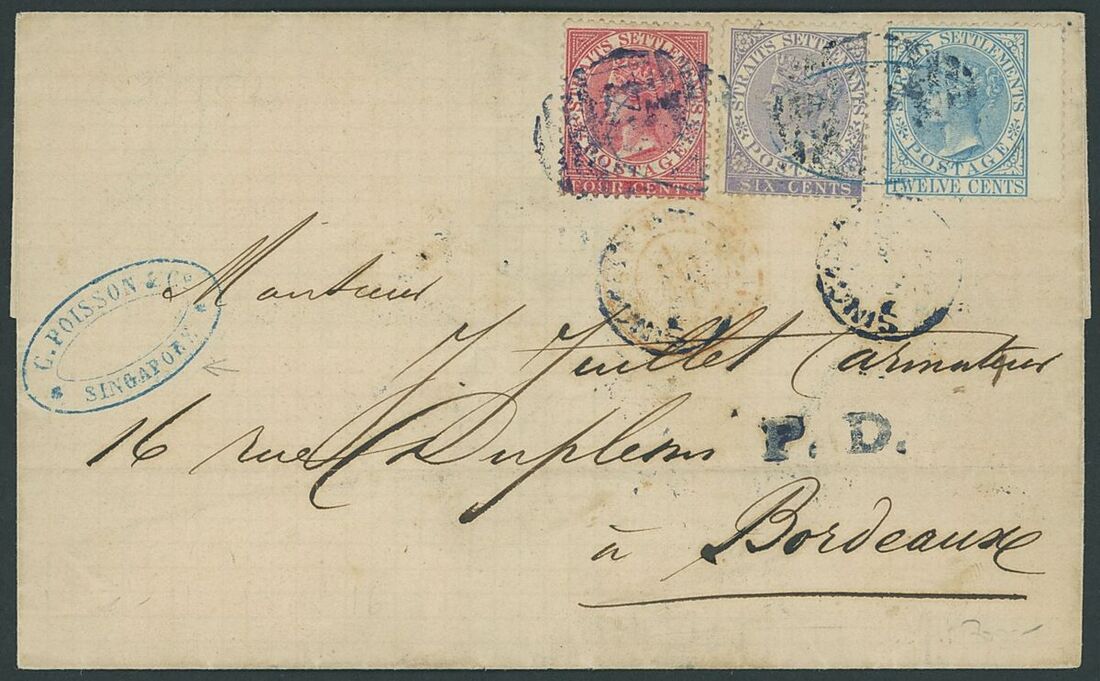 STRAITS SETTLEMENTS
POSTAGE
FOUR CENTS
STRAITS SETTLEMENTS
POSTAGE
SIX CENTS
STRAITS SETTLEMENTS
POSTAGE
TWELVE CENTS
C. POISSON & Co
SINGAPORE
Monsieur
J. Juillet armateur
16 rue Dupleix
P. D.
à Bordeaux